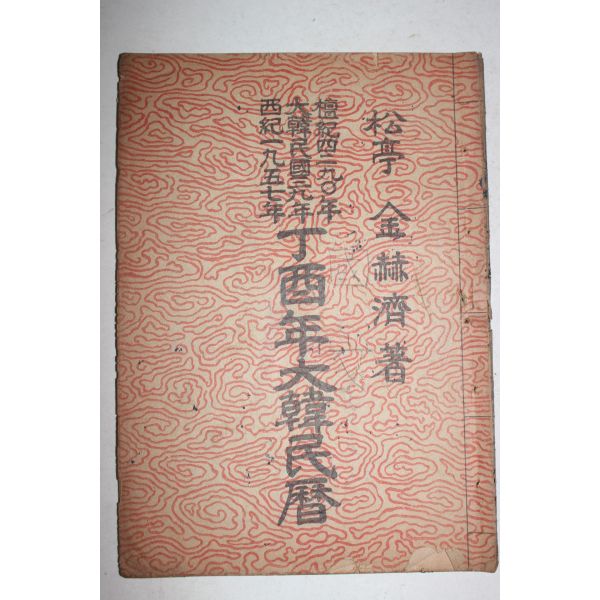 松亭 金赫濟 著
檀紀四二九〇年
大韓民國三九年
西紀一九五七年
丁酉年大韓民曆